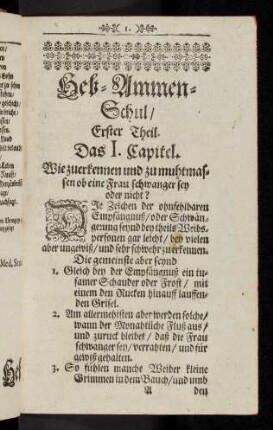 1.
Heb-Ammen-
Schul/
Erster Theil.
Das I. Capitel.
Wie zuerkennen und zu muhtmas-
sen ob eine Frau schwanger sey
oder nicht?
DIe Zeichen der ohnfehlbaren
Empfängnuß/ oder Schwän-
gerung seynd bey theils Weibs-
personen gar leicht/ bey vielen
aber ungewiß/ und sehr schwehr zuerkennen.
Die gemeinste aber seynd
1. Gleich bey der Empfängnuß ein ein-
samer Schauder oder Frost/ mit
einem den Rucken hinauff lauffen-
den Grisel.
2. Am allermehisten aber werden solche/
wann der Monahtliche Fluß aus/
und zuruck bleibet/ daß die Frau
schwanger sey/ verrahten/ und für
gewiß gehalten.
3. So fühlen manche Weiber kleine
Grimmen in dem Bauch/ und umb
A den